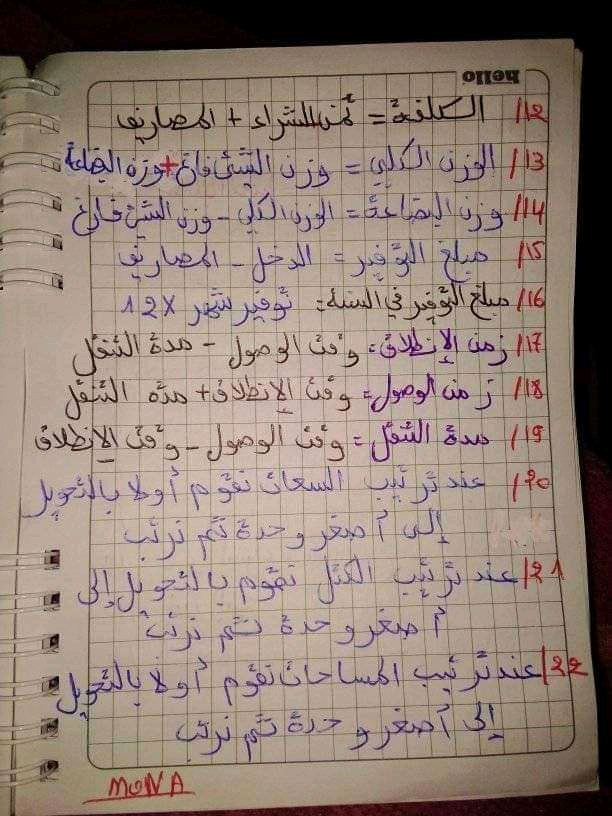 hello
12/ الكلفة = ثمن الشراء + المصاريف
13/ الوزن الكلي = وزن الشئ فارغ + وزن البضاعة
14/ وزن البضاعة = الوزن الكلي - وزن الشئ فارغ
15/ مبلغ التوفير = الدخل - المصاريف
16/ مبلغ التوفير في السنة = توفير شهر × 12
17/ زمن الإنطلاق = وقت الوصول - مدة التنقل
18/ زمن الوصول = وقت الإنطلاق + مدة التنقل
19/ مدة التنقل = وقت الوصول - وقت الإنطلاق
20/ عند ترتيب السعات نقوم أولا بالتحويل
إلى أصغر وحدة ثم نرتب
21/ عند ترتيب الكتل نقوم بالتحويل إلى
أصغر وحدة ثم نرتب
22/ عند ترتيب المساحات نقوم أولا بالتحويل
إلى أصغر وحدة ثم نرتب
MONA